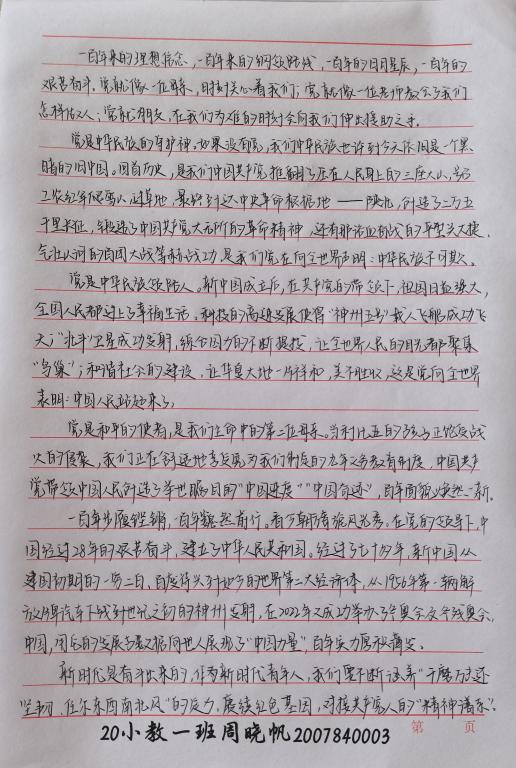 一百年来的理想信念,一百年来的钢领路线,一百年的日月星辰,一百年的
艰苦奋斗。党就像一位母亲,时时关心着我们;党就像一位老师教会了我们
怎样做人;党就像朋友,在我们为难的时刻会向我们伸出援助之手。
党是中华民族的守护神。如果没有党,我们中华民族也许到今天依旧是一个黑
暗的旧中国。回首历史,是我们中国共产党推翻了压在人民身上的三座大山,
工农红军爬雪山过草地,最终到达中央革命根据地——陕北,创造了二万五
千里长征,锻造了中国共产党大无畏的革命精神,还有那浴血奋战的平型关大捷,
气壮山河的百团大战等等战功,是我们党在向全世界声明:中华民族不可欺。
党是中华民族领路人。新中国成立后,在共产党的带领下,祖国日益强大,
全国人民都过上了幸福生活。科技的高速发展使得“神州五号”载人飞船成功飞
天;“北斗”卫星成功发射,综合国力的不断提拔,让全世界人民的目光都聚集
“鸟巢”;和谐社会的建设,让华夏大地一片祥和,美不胜收,这是党向全世界
表明:中国人民站起来了。
党是和平的使者,是我们生命中的第二位母亲。当利比亚的孩子正饱受战
火的侵袭,我们正在舒适地享受党为我们制定的九年义务教育制度,中国共产
党带领中国人民创造了举世瞩目的“中国速度”“中国奇迹”,百年面貌焕然一新。
一百年步履铿锵,一百年巍然前行。看今朝满旗风光秀。在党的领导下,中
国经过28年的艰苦奋斗,建立了中华人民共和国。经过了七十多年,新中国从
建国初期的一穷二白,百废待兴到如今的世界第二大经济体,从1956年第一辆解
放牌汽车下线到世纪之初的神州发射,在2022年又成功举办冬奥会及冬残奥会,
中国,用它的发展与数据向世人展现了“中国力量”,百年实力厚积薄发。
新时代是奋斗出来的,作为新时代青年人,我们要不断涵养“千磨万击还
坚韧,任尔东西南北风”的定力,赓续红色基因,对接共产党人的“精神谱系”。
20小教一班周晓帆2007840003
第 页